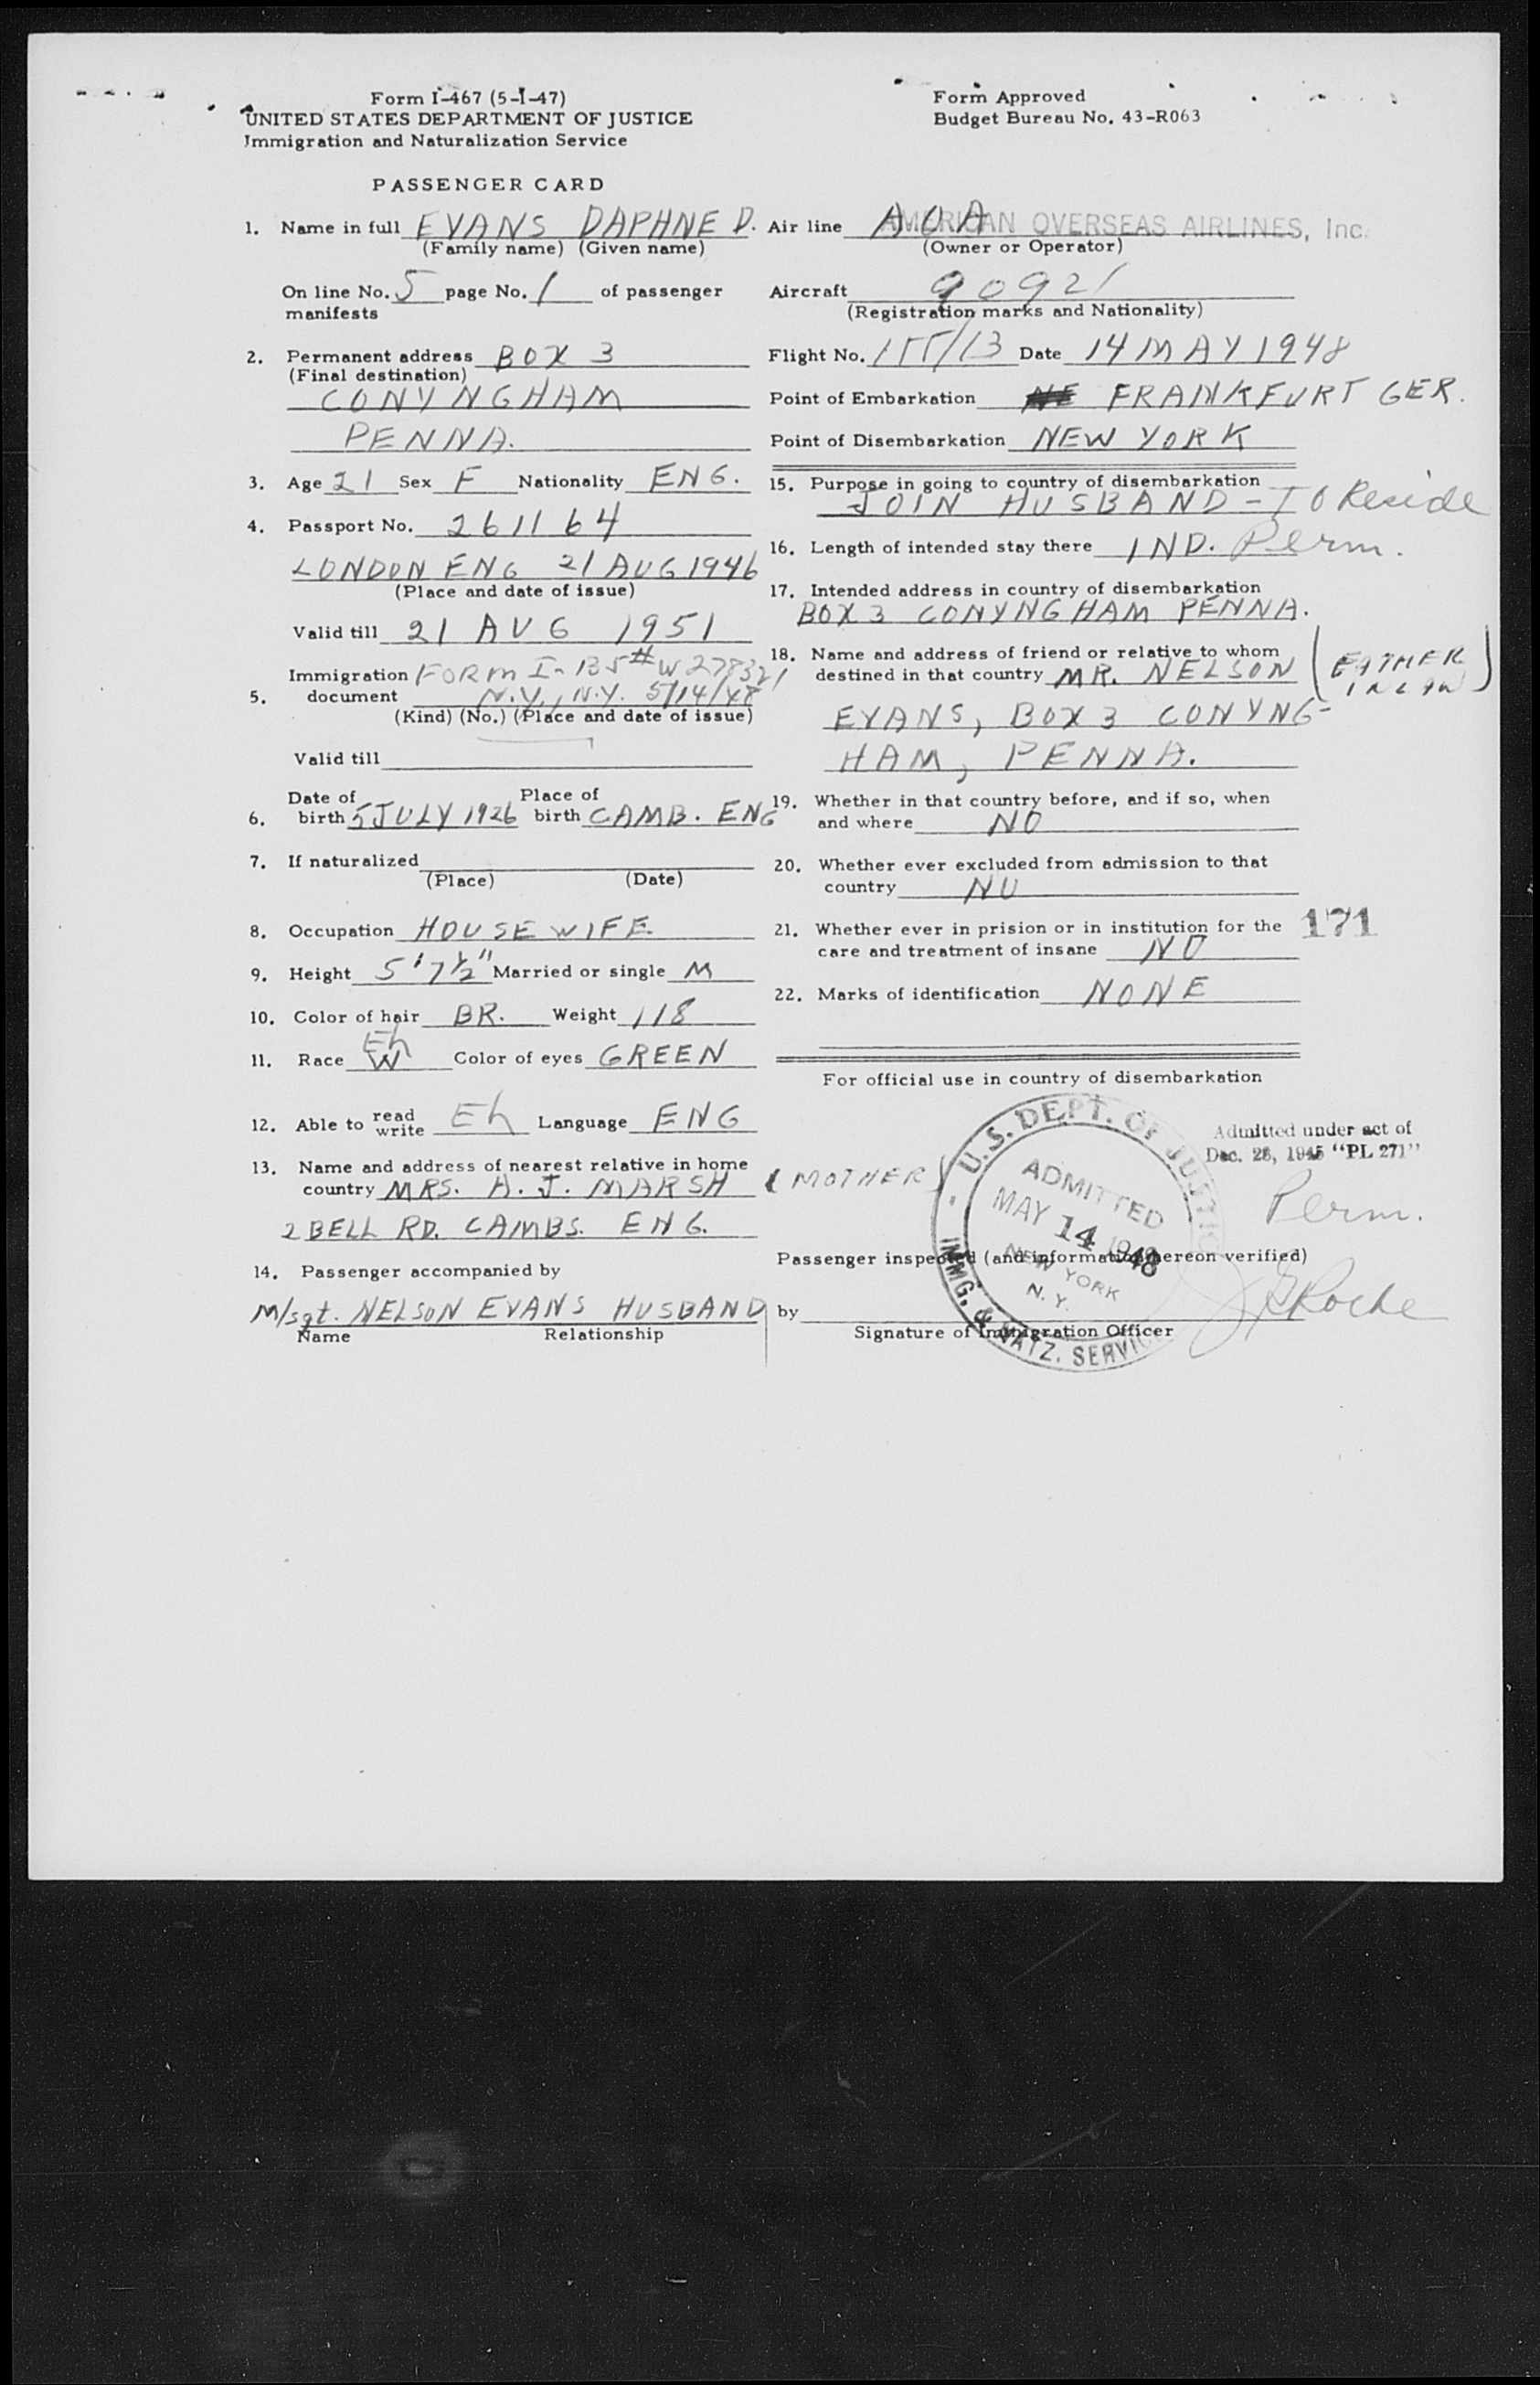 Form I-467 (5-1-47)
UNITED STATES DEPARTMENT OF JUSTICE
Immigration and Naturalization Service
Form Approved
Budget Bureau No. 43-R063
PASSENGER CARD
1. Name in full EVANS DAPHNE D.
(Family name) (Given name)
On line No. 5 page No. 1 of passenger
manifests
2. Permanent address BOX 3
(Final destination)
CONYNGHAM
PENNA.
3. Age 21 Sex F Nationality ENG.
4. Passport No. 261164
LONDON ENG 21 AUG 1946
(Place and date of issue)
Valid till 21 AUG 1951
Immigration FORM I-135 # W 278321
5. document N.Y., N.Y. 5/14/48
(Kind) (No.) (Place and date of issue)
Valid till
6. Date of birth 5 JULY 1926 Place of birth CAMB. ENG
7. If naturalized
(Place) (Date)
8. Occupation HOUSEWIFE
9. Height 5'7½" Married or single M
10. Color of hair BR. Weight 118
Eh
11. Race W Color of eyes GREEN
12. Able to read write Eh Language ENG
13. Name and address of nearest relative in home
country MRS. A. J. MARSH (MOTHER)
2 BELL RD. CAMBS. ENG.
14. Passenger accompanied by
M/sgt. NELSON EVANS HUSBAND
Name Relationship
Air line AOA AMERICAN OVERSEAS AIRLINES, Inc.
(Owner or Operator)
Aircraft 90921
(Registration marks and Nationality)
Flight No. 155/13 Date 14 MAY 1948
Point of Embarkation NE FRANKFURT GER.
Point of Disembarkation NEW YORK
15. Purpose in going to country of disembarkation
JOIN HUSBAND - TO Reside
16. Length of intended stay there IND. Perm.
17. Intended address in country of disembarkation
BOX 3 CONYNGHAM PENNA.
18. Name and address of friend or relative to whom
destined in that country MR. NELSON (FATHER IN LAW)
EVANS, BOX 3 CONYNG-
HAM, PENNA.
19. Whether in that country before, and if so, when
and where NO
20. Whether ever excluded from admission to that
country NO
21. Whether ever in prision or in institution for the 171
care and treatment of insane NO
22. Marks of identification NONE
For official use in country of disembarkation
U.S. DEPT. OF JUSTICE
ADMITTED
MAY 14 1948
NEW YORK
N.Y.
IMMG. & NATZ. SERVICE
Admitted under act of
Dec. 28, 1945 "PL 271"
Perm.
Passenger inspected (and information hereon verified)
by
Signature of Immigration Officer